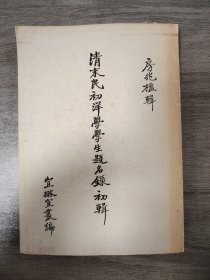 房兆楹輯
清末民初洋學學生題名錄初輯
宜琳室叢編